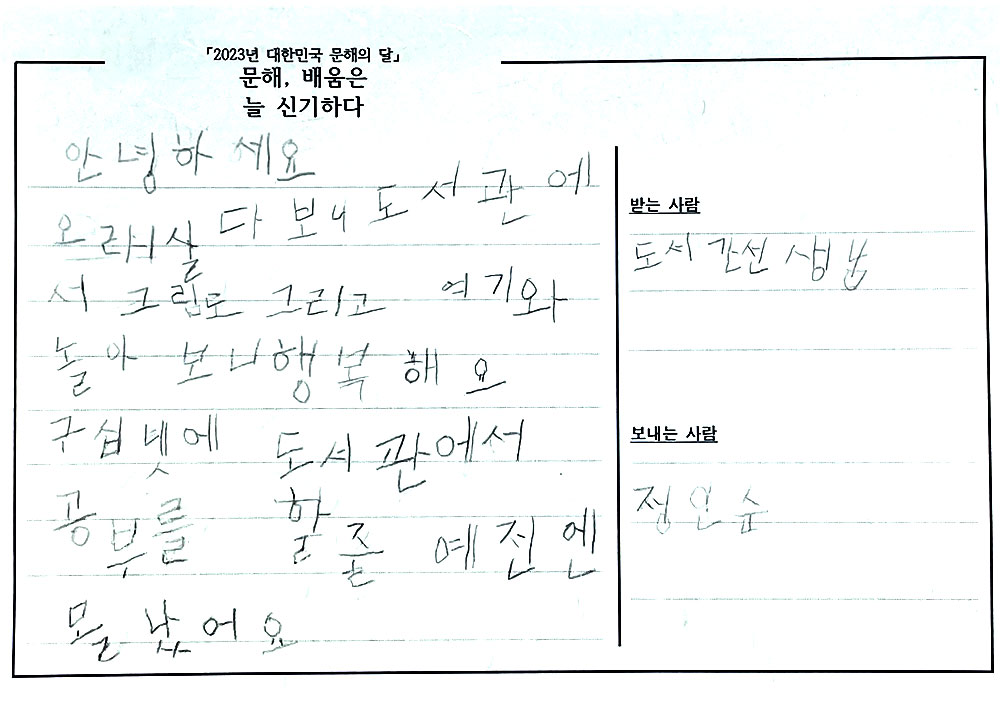 「2023년 대한민국 문해의 달」
문해, 배움은
늘 신기하다
안녕하세요
오래살다보니 도서관에
서 그림도 그리고 여기와
놀아 보니 행복해요
구십넷에 도서관에서
공부를 할줄 예전엔
몰랐어요
받는 사람
도서관선생님
보내는 사람
정인순